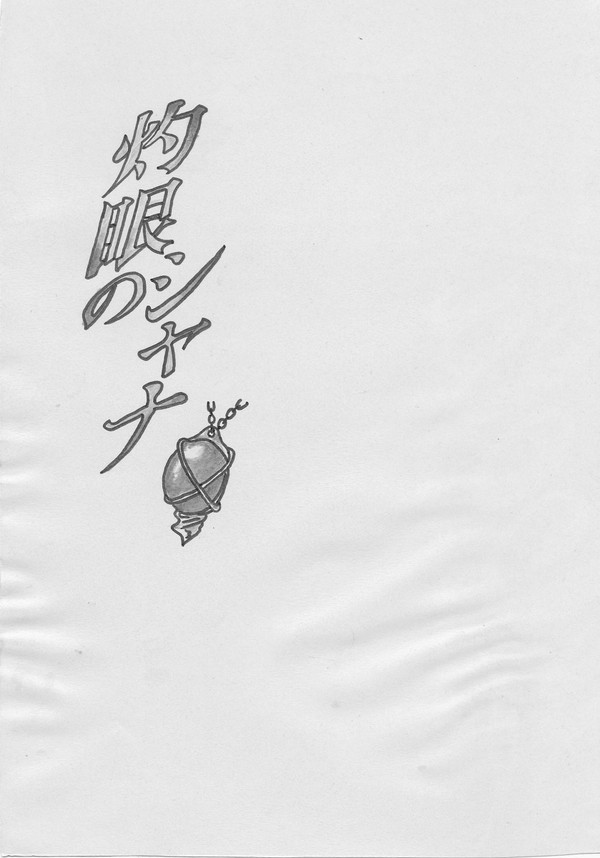 灼眼の
シャナ